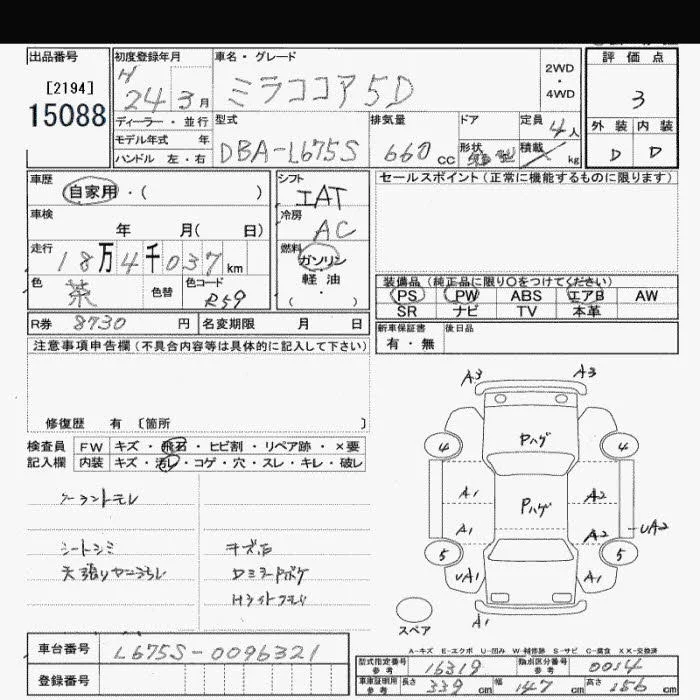 出品番号
[2194]
15088
初度登録年月
H
24 3月
ディーラー・並行
モデル年式 年
ハンドル 左・右
車名・グレード
ミラココア5D
2WD
・
4WD
評価点
3
外装 内装
D D
型式
DBA-L675S
排気量
660cc
ドア
形状
定員
4人
積載
kg
車歴
自家用・( )
車検
年 月( 日)
走行
18万4千037km
色
茶
色替
色コード
R59
R券 8730 円
名変期限 月 日
シフト
IAT
冷房
AC
燃料
ガソリン
軽油
( )
セールスポイント(正常に機能するものに限ります)
装備品(純正品に限り〇をつけてください)
PS PW ABS エアB AW
SR ナビ TV 本革
新車保証書
有・無
後日品
注意事項申告欄(不具合内容等は具体的に記入して下さい)
修復歴 有〔箇所 〕
検査員
記入欄
FW キズ・飛石・ヒビ割・リペア跡・×要
内装 キズ・汚レ・コゲ・穴・スレ・キレ・破レ
クーラントモレ
シートシミ
天張りヤニヨゴレ
キズ凹
Dミラーボケ
Hライトクモリ
A3 A3
4 Pハゲ 4
A1 Pハゲ A2
A1 A2 UA2
5 5
UA1 A1
A1
スペア
A-キズ E-エクボ U-凹み W-補修跡 S-サビ C-腐食 XX-交換済
車台番号 L675S-0096321
登録番号
型式指定番号
参考
16319
類別区分番号
参考
0014
車庫証明用
参考
長さ 339cm 幅 147cm 高さ 156cm